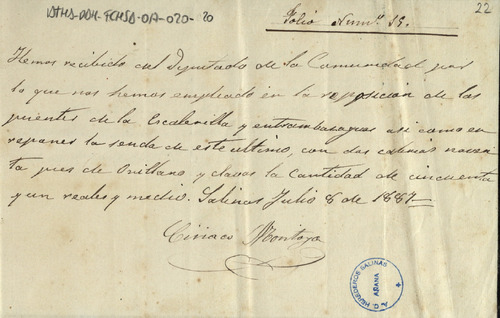 22
ATHA-DAH-FCHSA-OA-020-20
Folio Numº 15.
Hemos recibido del Diputado de la Comunidad por
lo que nos hemos empleado en la reposicion de las
puentes de la Escalerilla y entrambasaguas asi como en
reponer la senda de este ultimo, con dos cabrias noven
ta pies de Orillano y clavos la Cantidad de cincuenta
y un reales y medio. Salinas Julio 8 de 1887
Ciriaco Montoya
A.C. HEREDEROS SALINAS
AÑANA